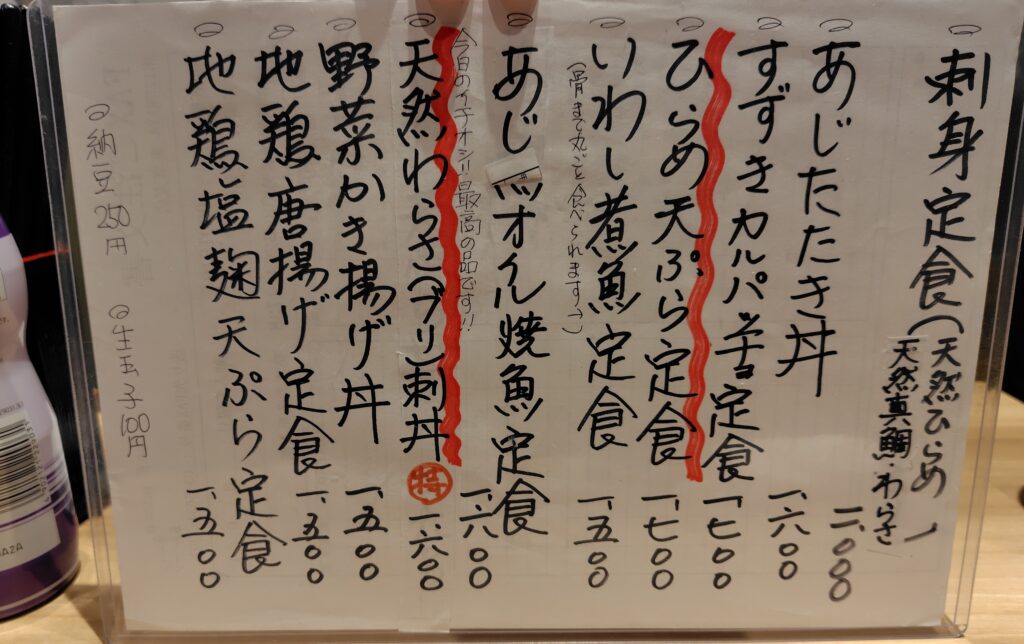 刺身定食(天然ひらめ
天然真鯛・わらさ)
二、〇〇〇
あじたたき丼
一、六〇〇
すずきカルパッチョ定食
一、七〇〇
ひらめ天ぷら定食
一、七〇〇
いわし煮魚定食
(骨まで丸ごと食べられます)
一、五〇〇
あじオイル焼魚定食
一、六〇〇
今日のイチオシ!!最高の品です!!
天然わらさ(ブリ)刺丼
特
一、六〇〇
野菜かき揚げ丼
一、五〇〇
地鶏唐揚げ定食
一、五〇〇
地鶏塩麹天ぷら定食
一、五〇〇
納豆250円
生玉子100円